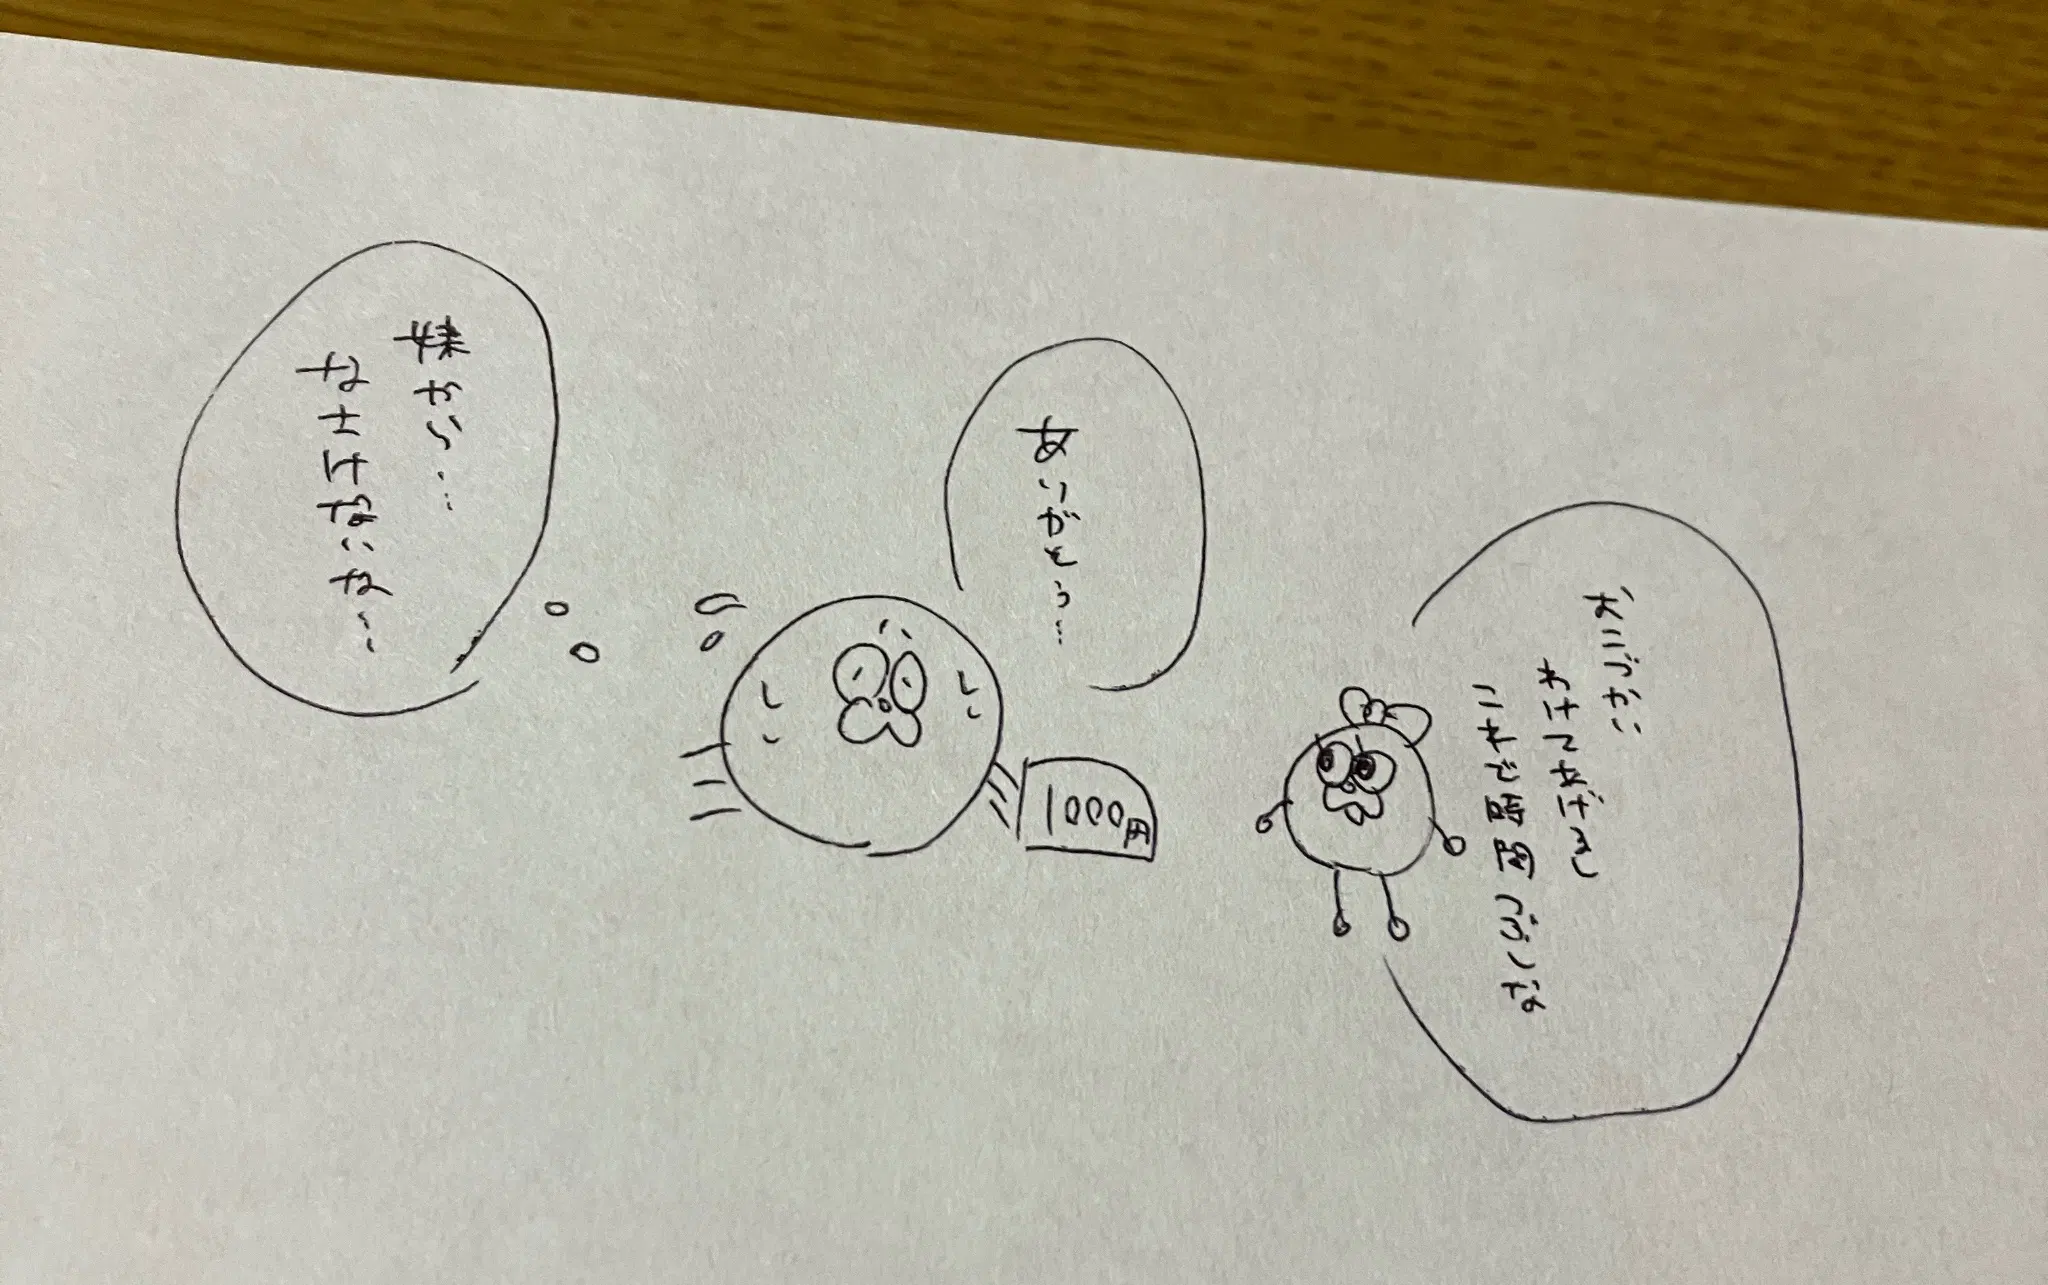 おこづかい
わけてあげる
これで
ありがとう…
妹から…
なさけないな…
1000円